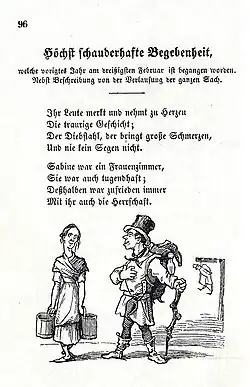 96
Höchst schauderhafte Begebenheit,
welche voriges Jahr am dreißigsten Februar ist begangen worden.
Nebst Beschreibung von der Verlaufung der ganzen Sach.
Ihr Leute merkt und nehmt zu Herzen
Die traurige Geschicht;
Der Diebstahl, der bringt große Schmerzen,
Und nie kein Segen nicht.
Sabine war ein Frauenzimmer,
Sie war auch tugendhaft;
Deßhalben war zufrieden immer
Mit ihr auch die Herrschaft.